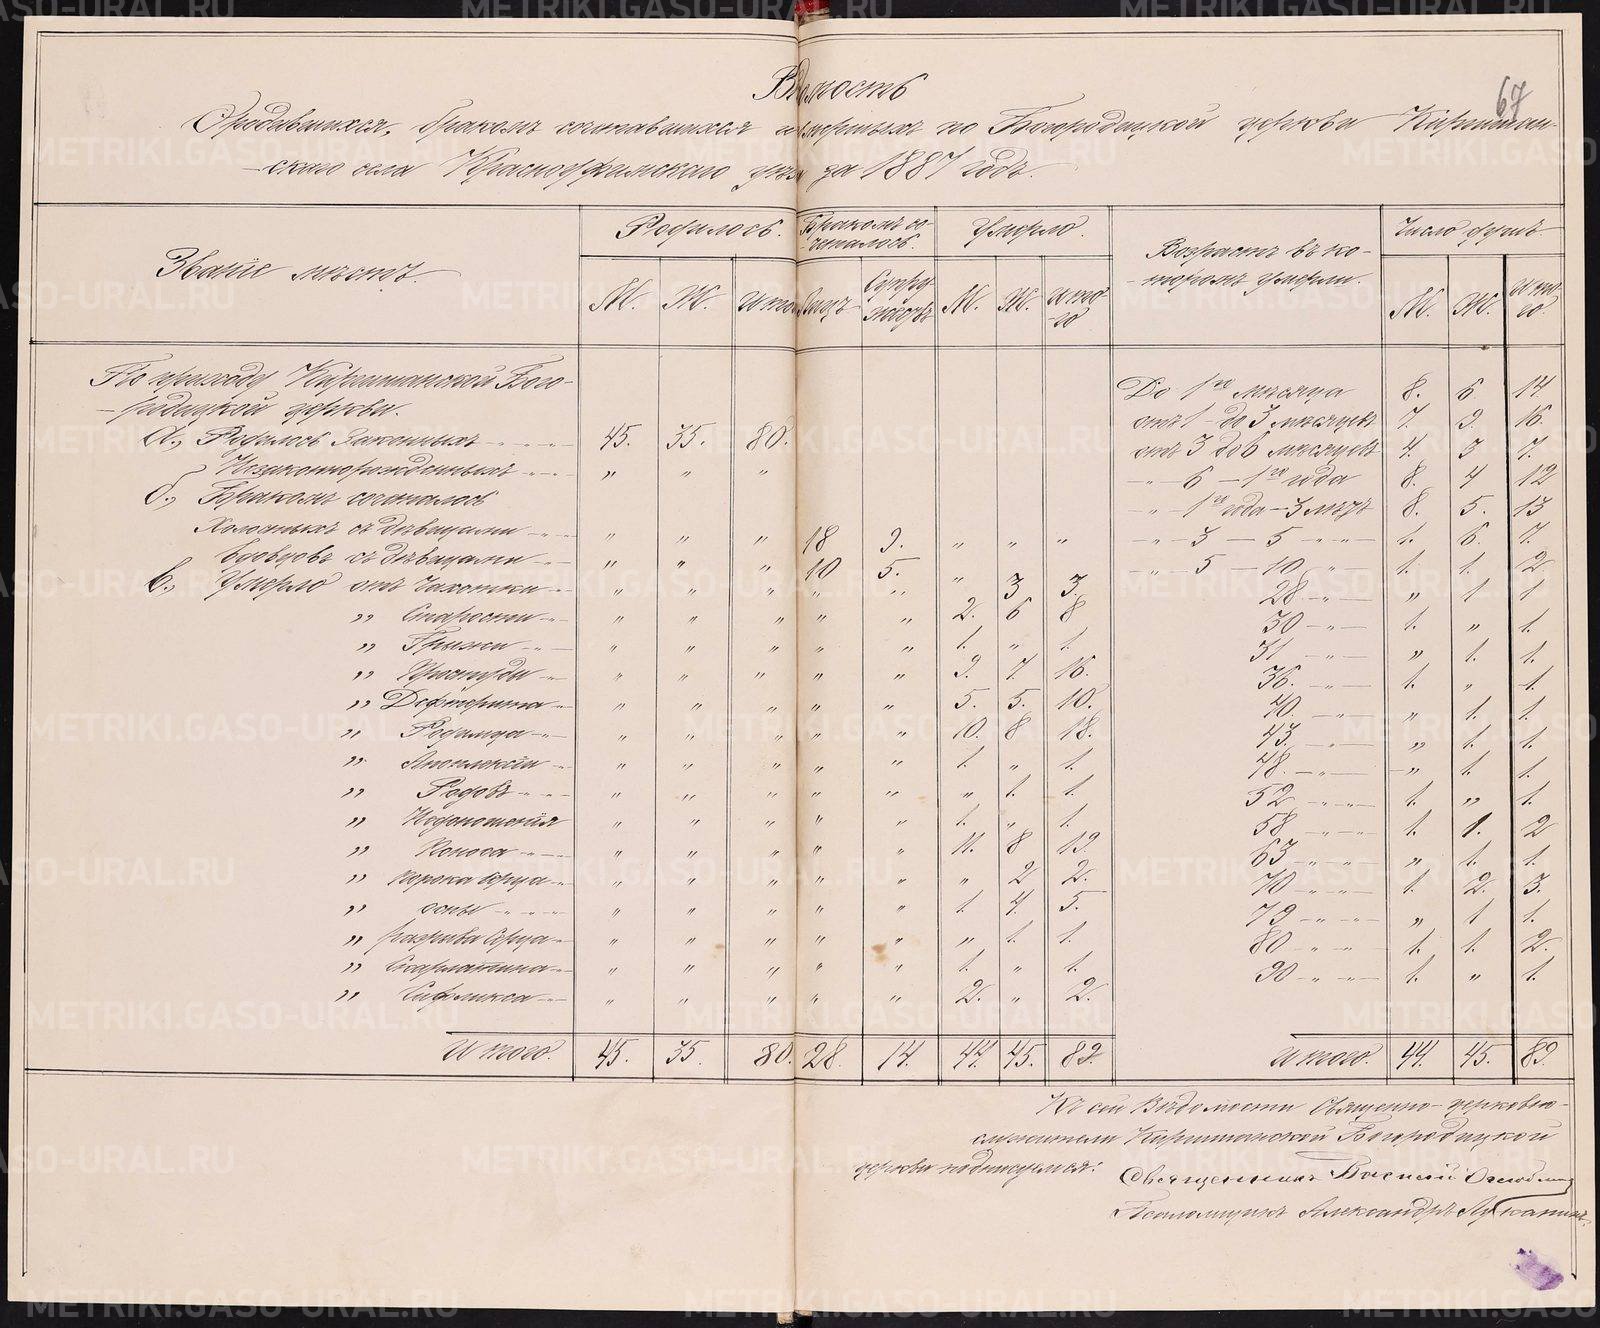 67
Вѣдомость
О родившихся, бракомъ сочетавшихся и умершихъ по Богородицкой церкви Киршан-
скаго села Красноуфимскаго уѣзда за 1887 годъ.
Званіе мѣстъ. Родилось. Бракомъ со- Умерло. Возрастъ въ ко- Число душъ
четалось. торомъ умерли.
М. Ж. итого Лицъ Супру- М. Ж. ито- М. Ж. ито-
жествъ го го.
По приходу Киршанской Бого-
родицкой церкви.
а., Родилось законныхъ 45. 35. 80.
Незаконнорожденныхъ " " "
б., Бракомъ сочеталось
Холостыхъ съ дѣвицами " " " 18 9. " " "
Вдовцовъ съ дѣвицами " " " 10 5. "
в., Умерло отъ чахотки " " " " " 3 3.
" Старости " " " " " 2. 6 8
" Грыжи " " " " " 1. " 1.
" Простуды " " " " " 9. 7. 16.
" Дефтерита " " " " " 5. 5. 10.
" Родимца " " " " " 10. 8 18.
" Апоплексіи " " " " " 1. " 1.
" Родовъ " " " " " " 1. 1.
" Недоношенія " " " " " 1. " 1.
" Поноса " " " " " 11. 8 19.
" " " " " " " 2 2.
" оспы " " " " " 1. 4. 5.
" разрыва сердца " " " " " " 1. 1.
" Скарлатина " " " " " 1. " 1.
" Сифлиса " " " " " 2. " 2.
Итого. 45. 35. 80. 28. 14. 44. 45. 89.
До 1го мѣсяца 8. 6 14.
отъ 1 до 3 мѣсяцевъ 7. 9. 16.
отъ 3 до 6 мѣсяцевъ 4. 3 7.
" 6 – 1го года 8. 4 12
" 1го года – 3 лѣтъ 8. 5. 13
" 3 – 5 " 1. 6. 7.
" 5 – 10 " 1. 1. 2
28 " " 1 1
30 " 1. " 1.
31 " " 1. 1.
36. " 1. " 1.
40. " " 1. 1.
43. " " 1. 1.
48. " " 1. 1.
52 " 1. " 1.
58 " 1. 1. 2
63 " " 1. 1.
70 " 1. 2. 3.
79 " " 1 1.
80 " 1. 1. 2.
90 " 1. " 1.
Итого. 44. 45. 89.
Къ сей Вѣдомости Священно-церковно-
служители Киршанской Богородицкой
церкви подписуемся:
Священникъ Василій
Псаломщикъ Александръ Луканинъ
METRIKI.GASO-URAL.RU